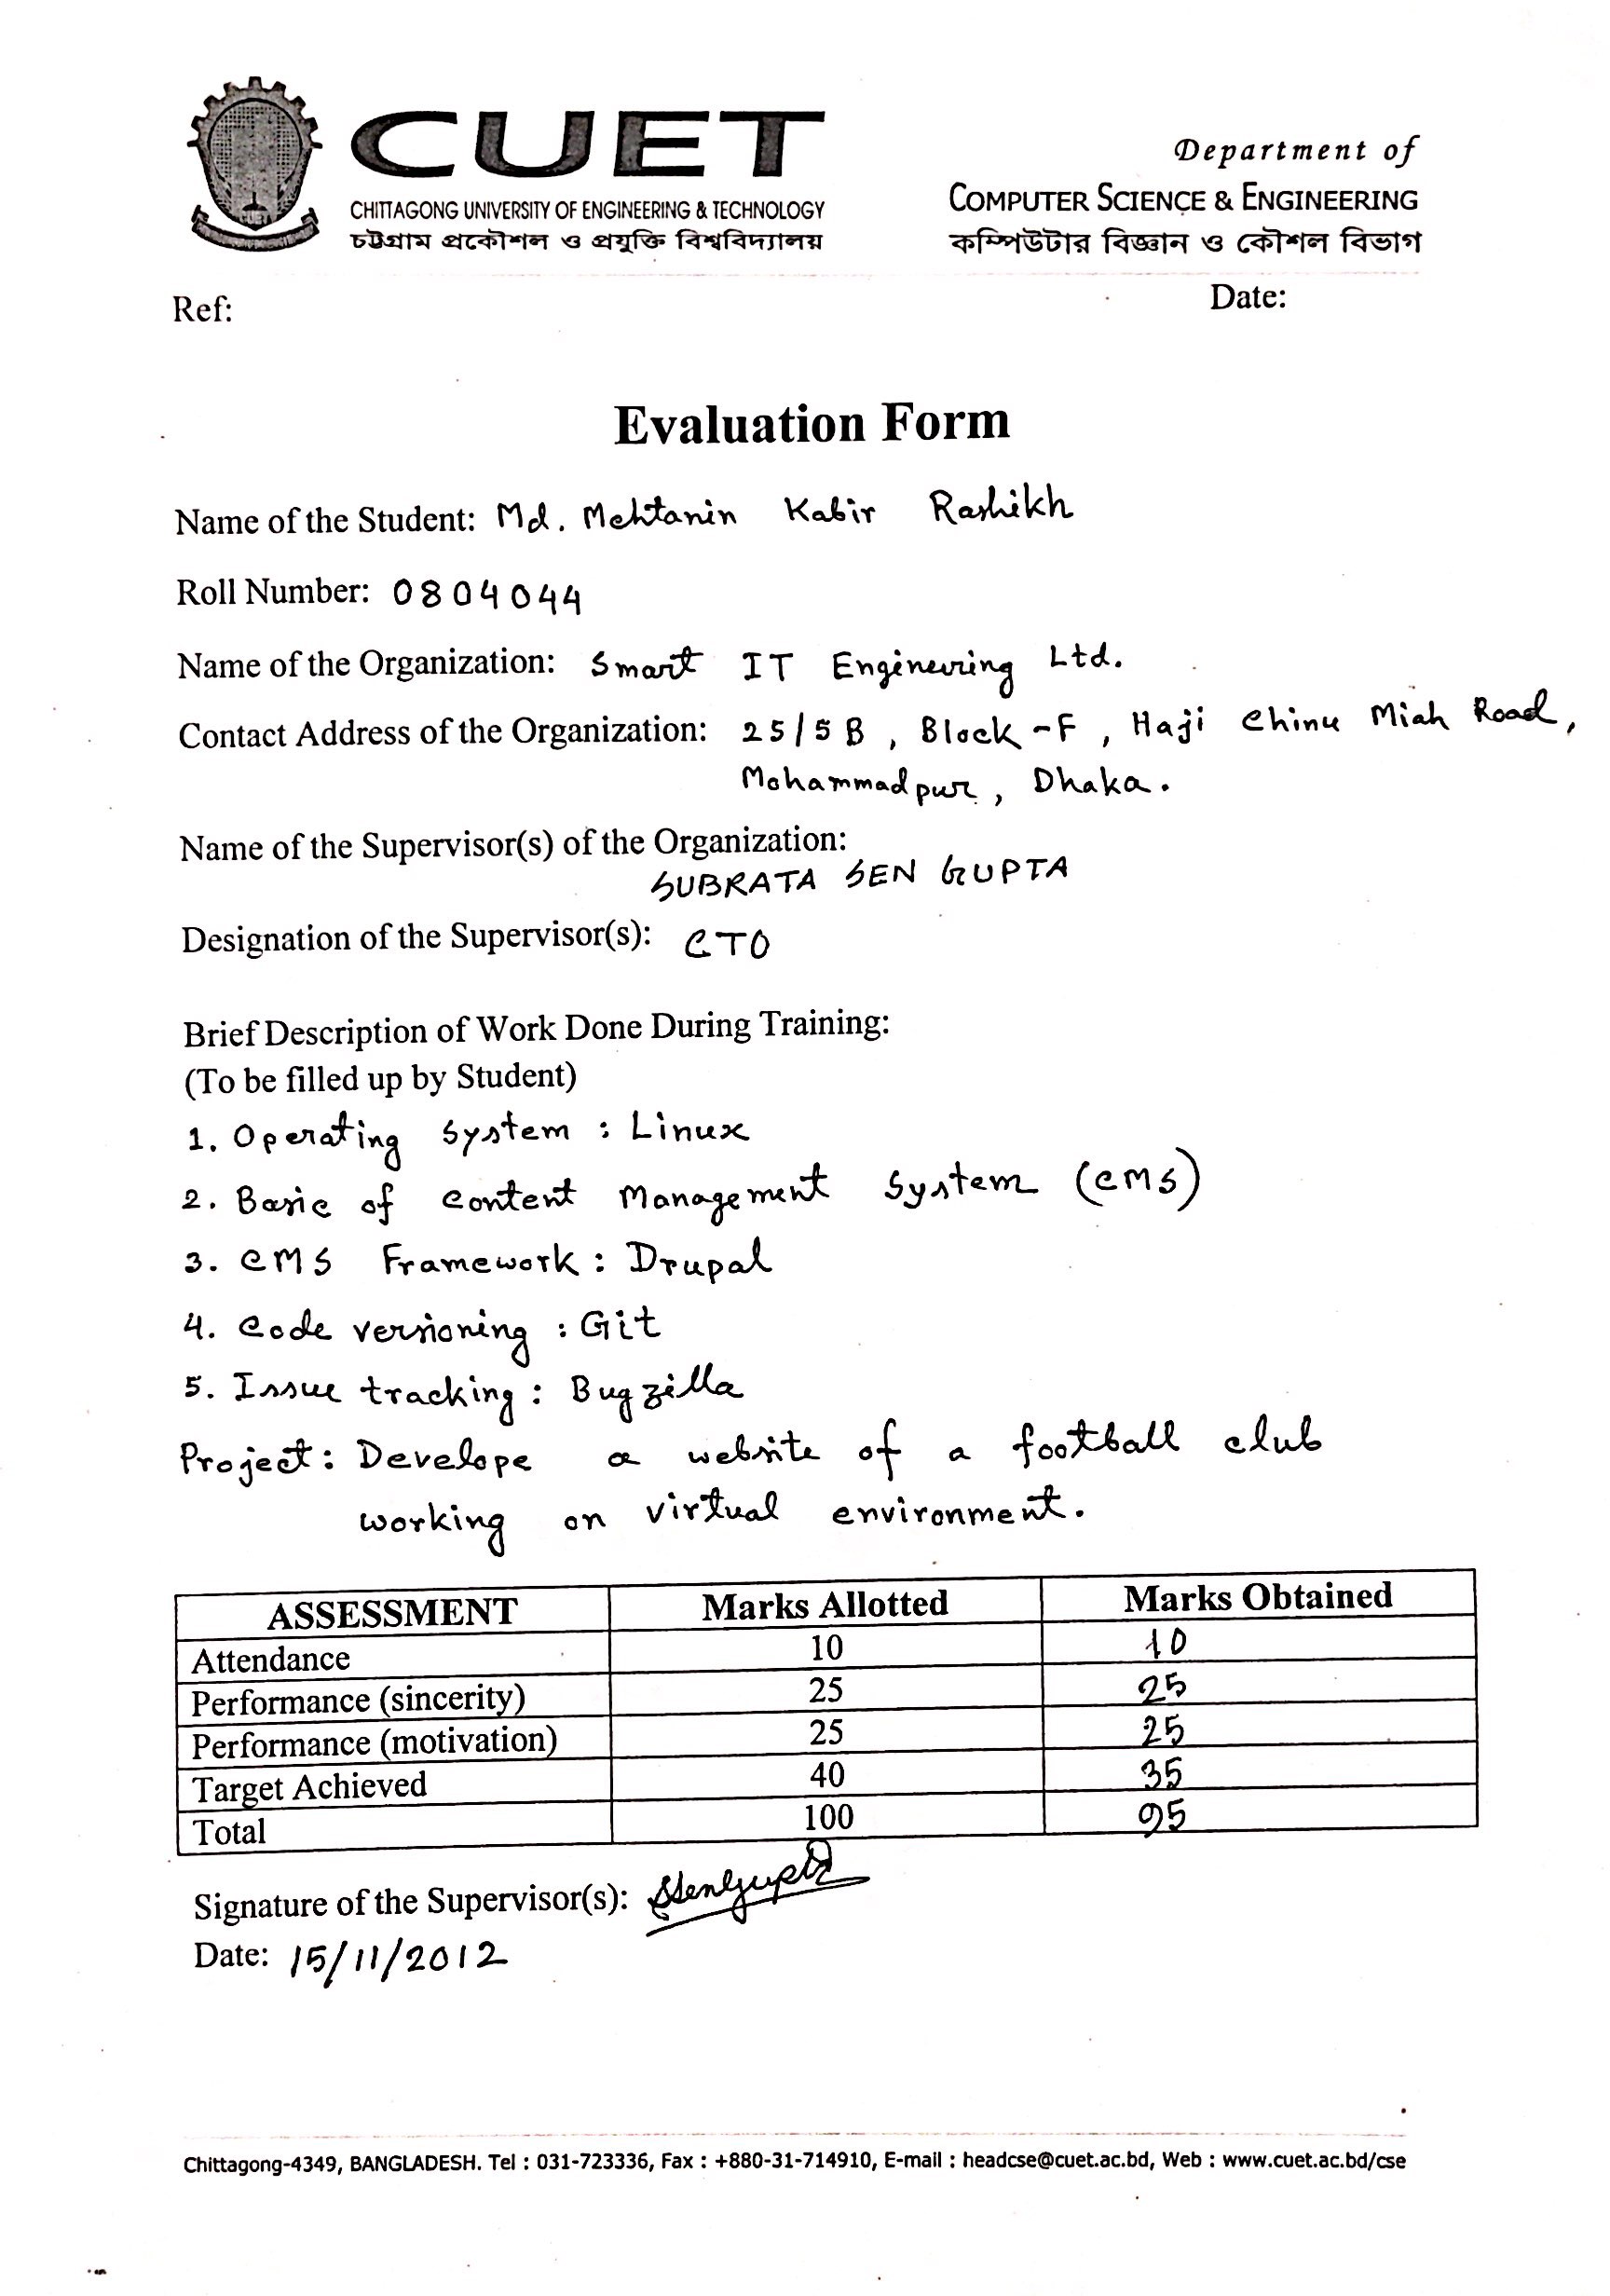 CUET
CHITTAGONG UNIVERSITY OF ENGINEERING & TECHNOLOGY
চট্টগ্রাম প্রকৌশল ও প্রযুক্তি বিশ্ববিদ্যালয়
Department of
COMPUTER SCIENCE & ENGINEERING
কম্পিউটার বিজ্ঞান ও কৌশল বিভাগ
CUET
Ref:
Date:
Evaluation Form
Name of the Student: Md. Mehtanin Kabir Rashikh
Roll Number: 0804044
Name of the Organization: Smart IT Engineering Ltd.
Contact Address of the Organization: 25/5B, Block-F, Haji Chinu Miah Road,
Mohammadpur, Dhaka.
Name of the Supervisor(s) of the Organization:
SUBRATA SEN GUPTA
Designation of the Supervisor(s): CTO
Brief Description of Work Done During Training:
(To be filled up by Student)
1. Operating System : Linux
2. Basic of Content Management System (CMS)
3. CMS Framework : Drupal
4. Code versioning : Git
5. Issue tracking : Bugzilla
Project : Develope a website of a football club
working on virtual environment.
ASSESSMENT Marks Allotted Marks Obtained
Attendance 10 10
Performance (sincerity) 25 25
Performance (motivation) 25 25
Target Achieved 40 35
Total 100 95
Signature of the Supervisor(s): SSenGupta
Date: 15/11/2012
Chittagong-4349, BANGLADESH. Tel : 031-723336, Fax : +880-31-714910, E-mail : headcse@cuet.ac.bd, Web : www.cuet.ac.bd/cse